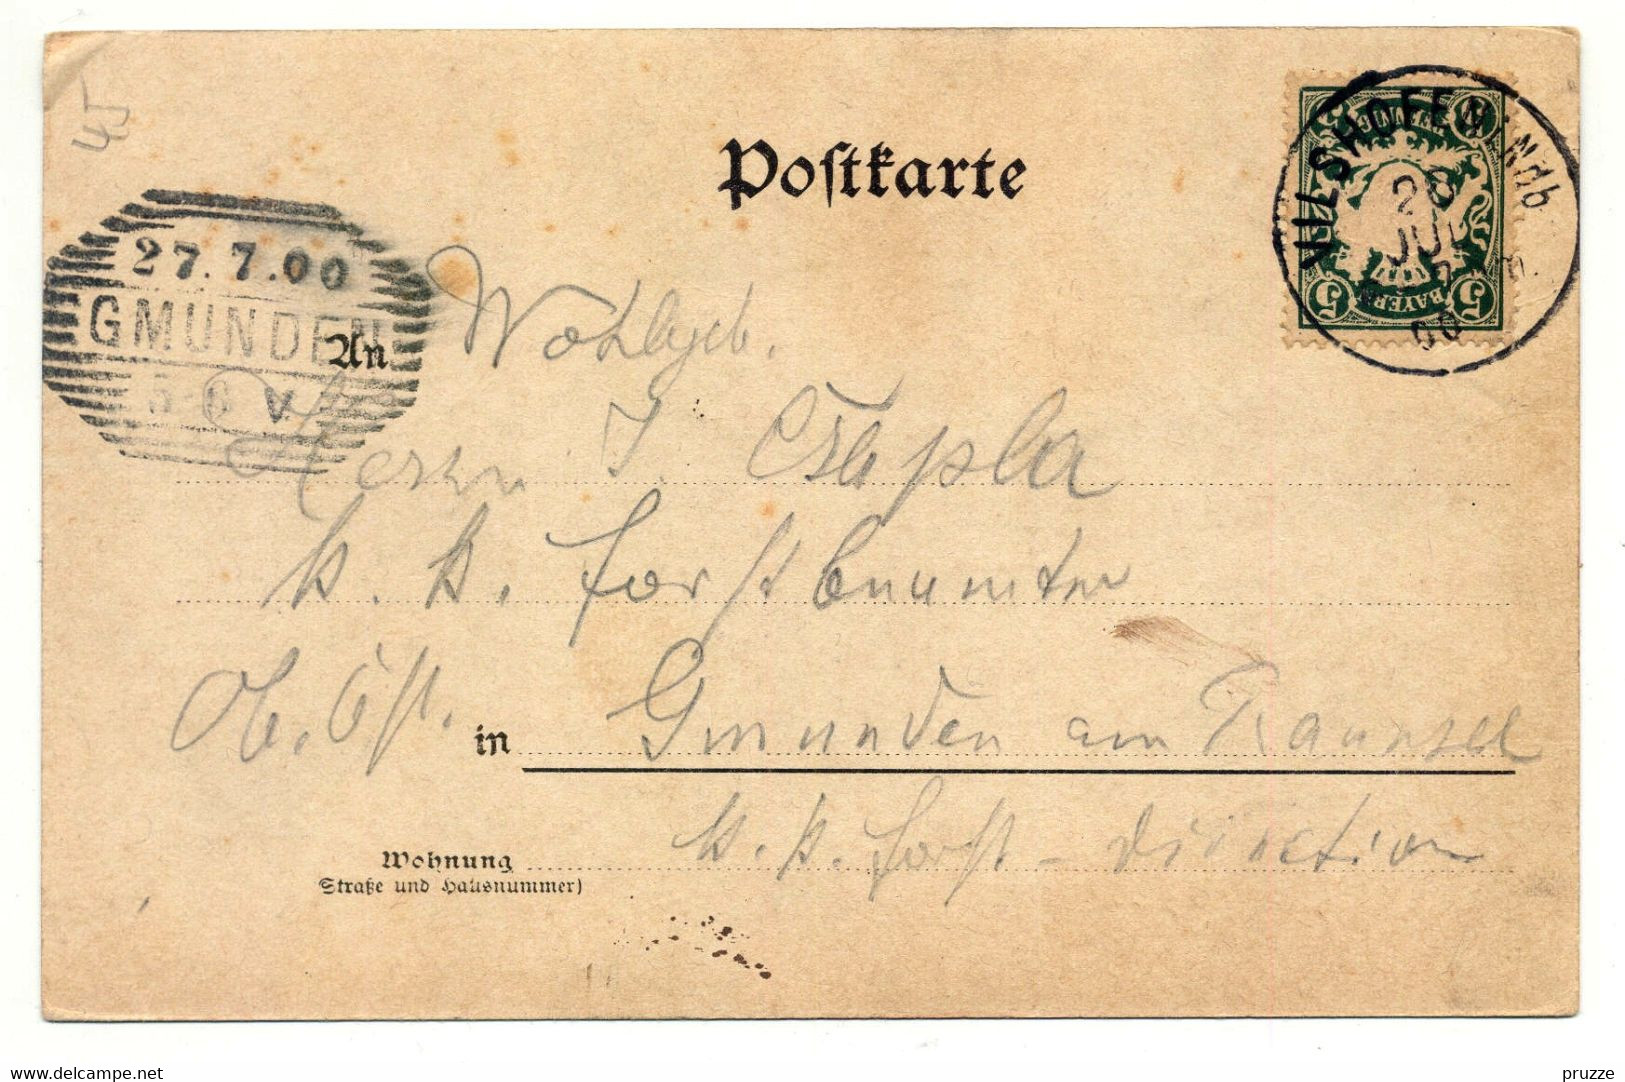 45
Postkarte
VILSHOFEN Ndb
26
JUL
00
PFENNIG
5 BAYERN 5
27.7.00
GMUNDEN
5-6 V
An Wohlgeb.
Herrn J. Czapla
k. k. Forstbeamter
Ob. Öst. in Gmunden am Traunsee
k. k. Forst-Direction
Wohnung
(Straße und Hausnummer)
pruzze